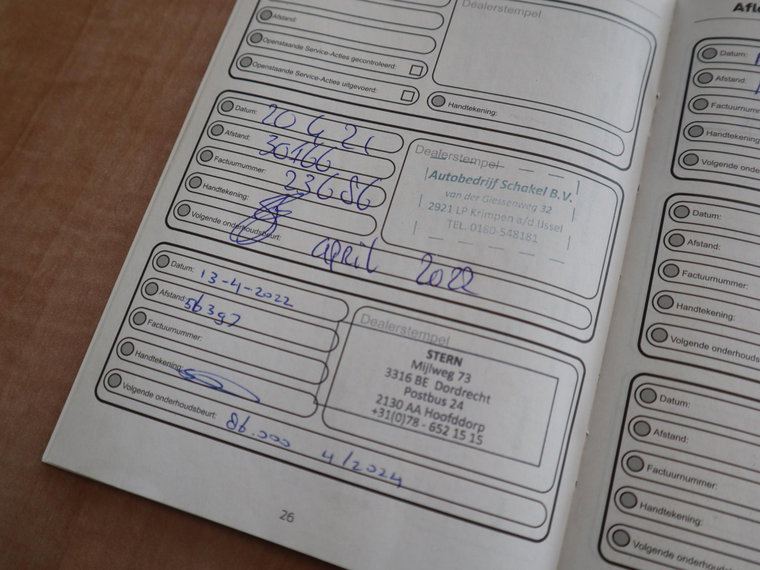 Afstand:
Openstaande Service-Acties gecontroleerd:
Openstaande Service-Acties uitgevoerd:
Dealerstempel
Handtekening:
Datum: 20 4 21
Afstand: 30160
Factuurnummer: 23686
Handtekening:
Volgende onderhoudsbeurt: april 2022
Dealerstempel
Autobedrijf Schakel B.V.
van der Giessenweg 32
2921 LP Krimpen a/d IJssel
TEL. 0180-548181
Datum: 13-4-2022
Afstand: 56397
Factuurnummer:
Handtekening:
Volgende onderhoudsbeurt: 86.000 4/2024
Dealerstempel
STERN
Mijlweg 73
3316 BE Dordrecht
Postbus 24
2130 AA Hoofddorp
+31(0)78 - 652 15 15
26
Datum:
Afstand:
Factuurnummer:
Handtekening:
Volgende
Datum:
Afstand:
Factuurnummer:
Handtekening:
Volgende
Datum:
Afstand:
Factuurnummer:
Handtekening:
Volgende